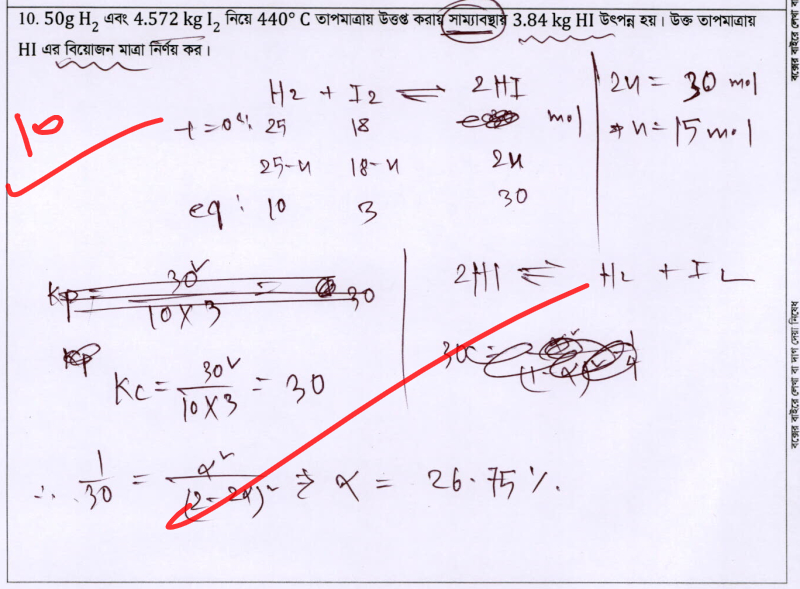 10. 50g H₂ এবং 4.572 kg I₂ নিয়ে 440° C তাপমাত্রায় উত্তপ্ত করায় সাম্যাবস্থায় 3.84 kg HI উৎপন্ন হয়। উক্ত তাপমাত্রায়
HI এর বিয়োজন মাত্রা নির্ণয় কর।
10
H₂ + I₂ ⇌ 2HI
t=0: 25 18 mol
25-x 18-x 2x
eq: 10 3 30
2x = 30 mol
x = 15 mol
Kp = 30² / 10×3 = 30
Kc = 30² / 10×3 = 30
2HI ⇌ H₂ + I₂
∴ 1/30 = α² / (2-2α)² ⇒ α = 26.75 %.
বক্সের বাইরে লেখা বা দাগ দেয়া নিষেধ